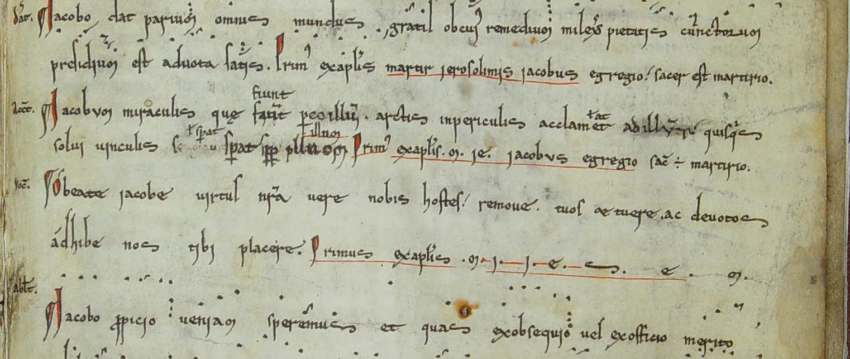 Dat. Jacobo dat parium omnis mundus gratis ob cui remedium miles pietatis cunctorum
presidium est ad vota satis. Prim' ex aplis martir ierosolimis iacobus egregio sacer est martirio.
Acc. Jacobum miraculis que fiunt per illum. arctis in periculis acclamet ad illum quisquis
solvi vinculis sperat Prim' ex aplis. m. ie. iacobus egregio sac ÷ martirio.
Voc. O beate iacobe virtus nra vere nobis hostes remove. tuos ac tuere. ac devotos
adhibe nos tibi placere. Primus ex aplis. m. i. i. e. s. e. m.
Ablt. Jacobo propicio veniam speremus et quas ex obsequio vel ex officio merito